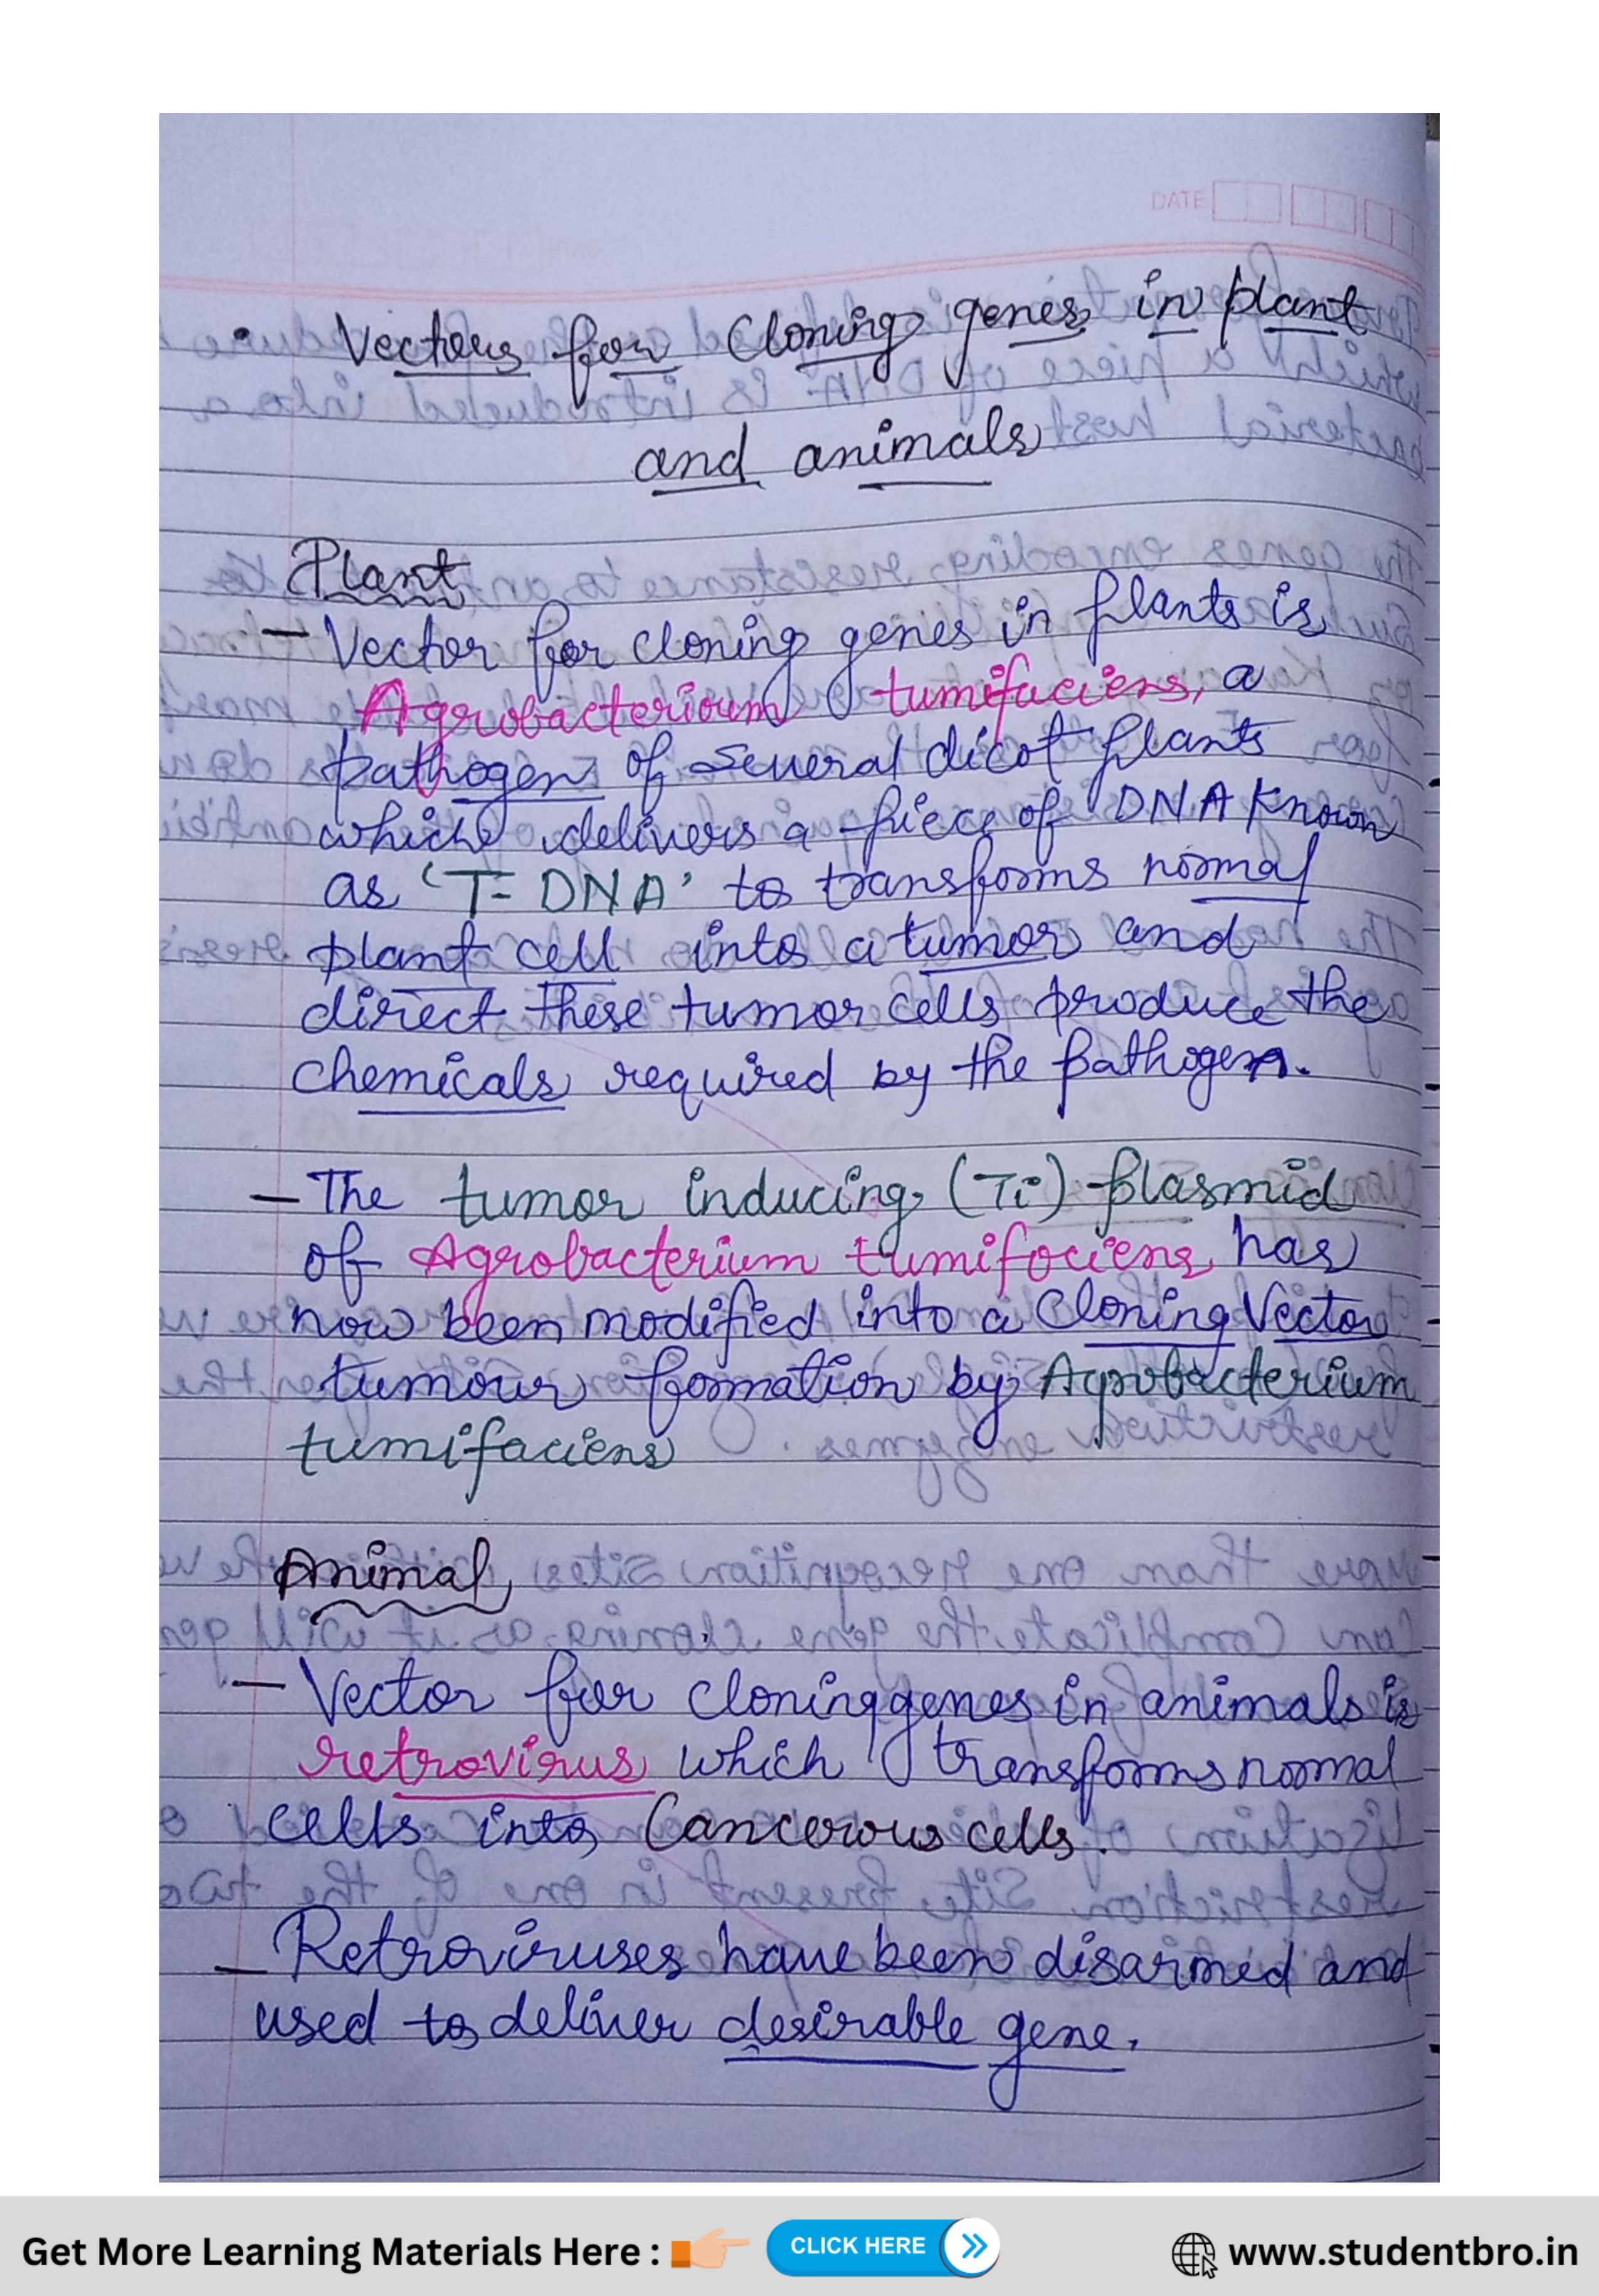 DATE
• Vectors for Cloning genes in plant
and animals
Plant
- Vector for cloning genes in plants is
Agrobacterioum tumifaciens, a
pathogen of several dicot plants
which delivers a piece of DNA Known
as 'T-DNA' to transforms normal
plant cell into a tumor and
direct these tumor cells produce the
chemicals required by the pathogen.
- The tumor inducing (Ti) plasmid
of Agrobacterium tumifociens has
now been modified into a Cloning Vector
tumour formation by Agrobacterium
tumifaciens
Animal
- Vector for cloning genes in animals is
retrovirus which transforms normal
cells into Cancerous cells.
- Retroviruses have been disarmed and
used to deliver desirable gene.
Get More Learning Materials Here : CLICK HERE www.studentbro.in